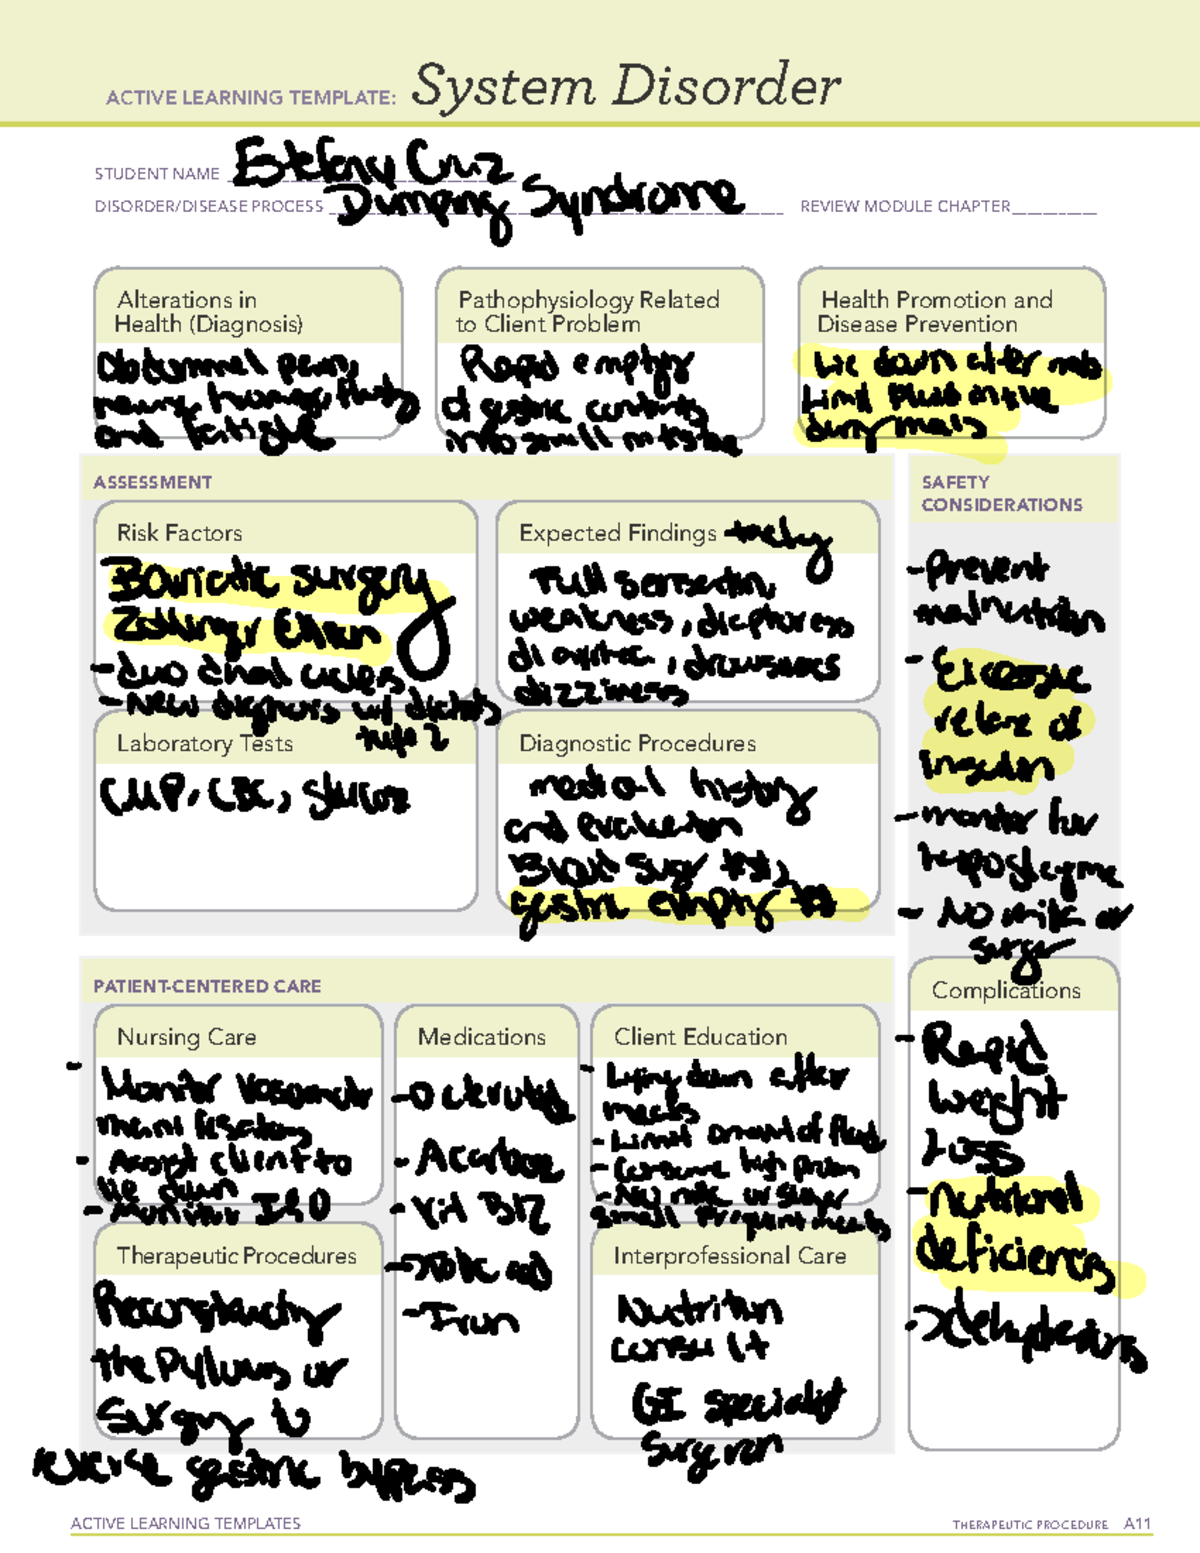 ACTIVE LEARNING TEMPLATE: System Disorder
STUDENT NAME Estefany Cruz
DISORDER/DISEASE PROCESS Dumping Syndrome REVIEW MODULE CHAPTER
Alterations in
Health (Diagnosis)
Abdominal pain,
and fatigue
Pathophysiology Related
to Client Problem
Rapid emptying
of gastric contents
into small intestine
Health Promotion and
Disease Prevention
Lie down after meals
Limit fluid intake
during meals
ASSESSMENT
Risk Factors
Bariatric surgery
Zollinger Ellison
- duodenal ulcers
- New diagnosis w/ diabetes
type 2
Expected Findings - early
Full sensation,
weakness, diaphoresis
drowsiness
dizziness
Laboratory Tests
CMP, CBC, glucose
Diagnostic Procedures
medical history
and evaluation
Blood sugar test,
gastric emptying test
SAFETY
CONSIDERATIONS
- prevent
malnutrition
- Excessive
release of
insulin
- monitor for
- No milk or
sugar
PATIENT-CENTERED CARE
Nursing Care
- Monitor Vasomotor
manifestations
- Assist client to
lie down
- Monitor I&O
Medications
- Octreotide
- Acarbose
- Vit B12
- Folic acid
- Iron
Client Education
- Lying down after
meals
- Limit amount of fluids
- Consume high protein
- No milk or sugar
small frequent meals
Therapeutic Procedures
Reconstructing
the Pylorus or
Surgery to
reverse gastric bypass
Interprofessional Care
Nutrition
consult
GI specialist
Surgeon
Complications
- Rapid
weight
loss
- nutritional
deficiencies
ACTIVE LEARNING TEMPLATES
THERAPEUTIC PROCEDURE A11